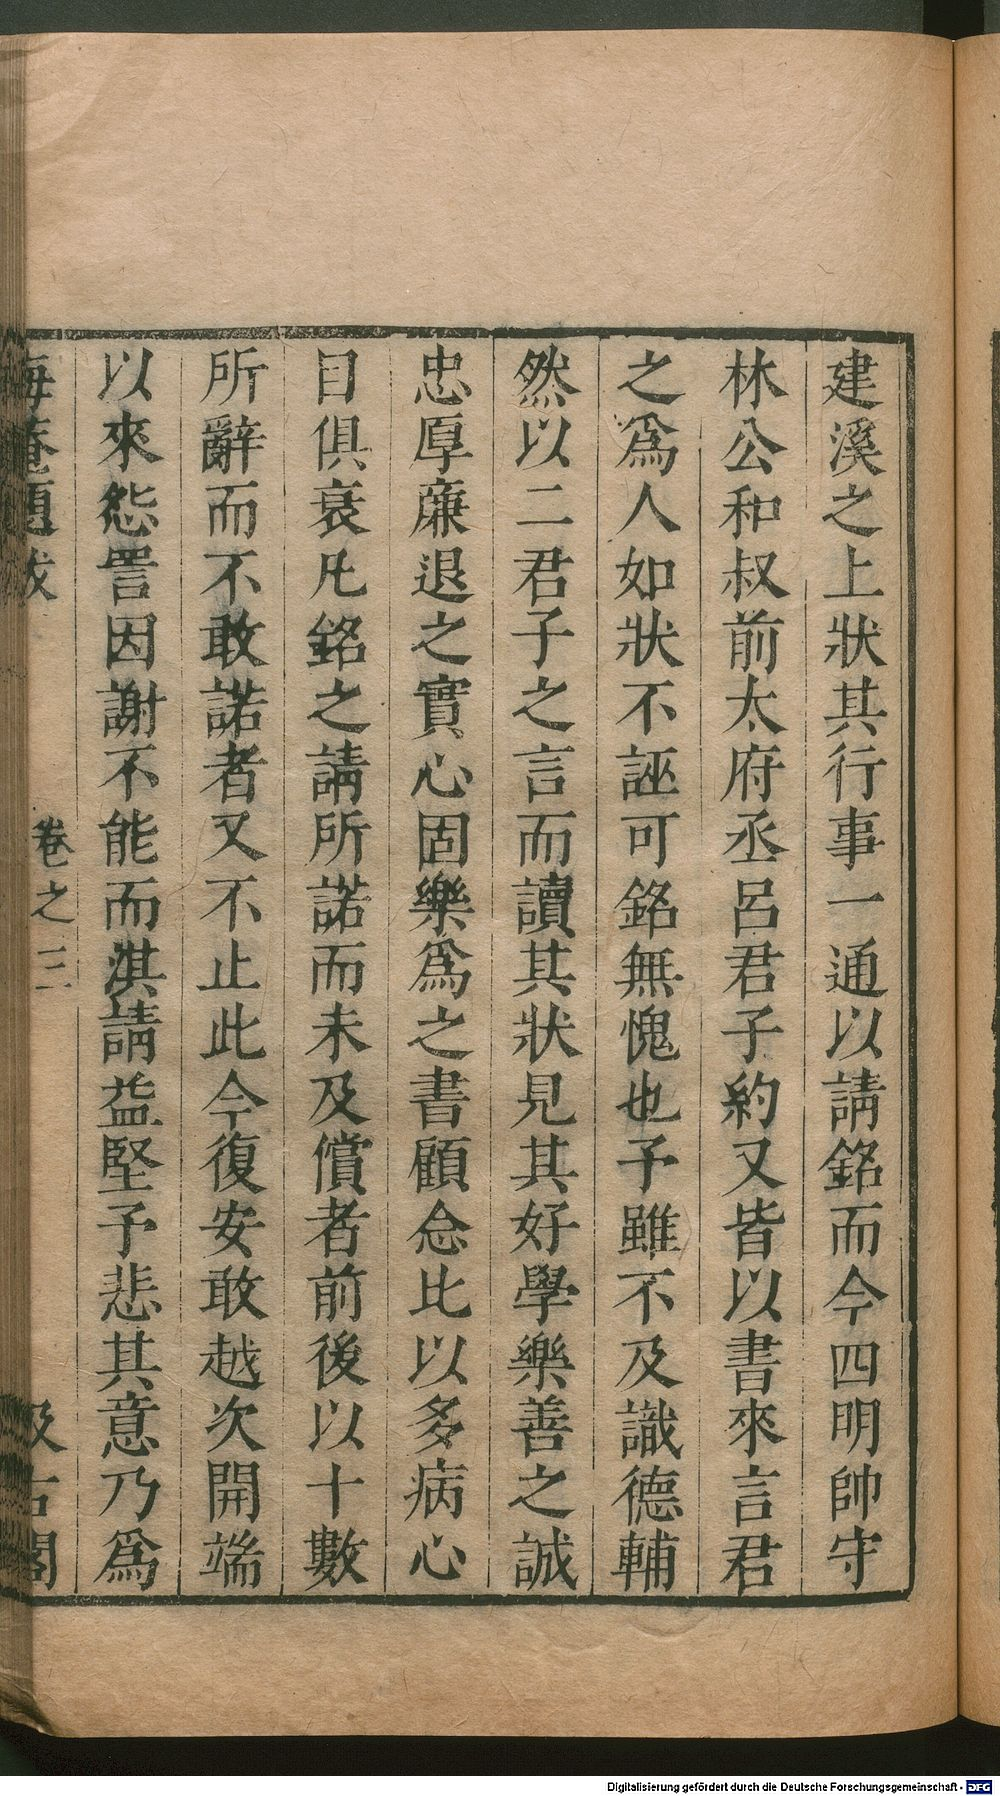 建溪之上狀其行事一通以請銘而今四明帥守
林公和叔前太府丞呂君子約又皆以書來言君
之爲人如狀不誣可銘無愧也予雖不及識德輔
然以二君子之言而讀其狀見其好學樂善之誠
忠厚薕退之實心固樂爲之書顧念比以多病心
目俱衰凡銘之請所諾而未及償者前後以十數
所辭而不敢諾者又不止此今復安敢越次開端
以來怨詈因謝不能而淇請益堅予悲其意乃爲
海菴題跋 卷之三 汲古閣
Digitalisierung gefördert durch die Deutsche Forschungsgemeinschaft - DFG